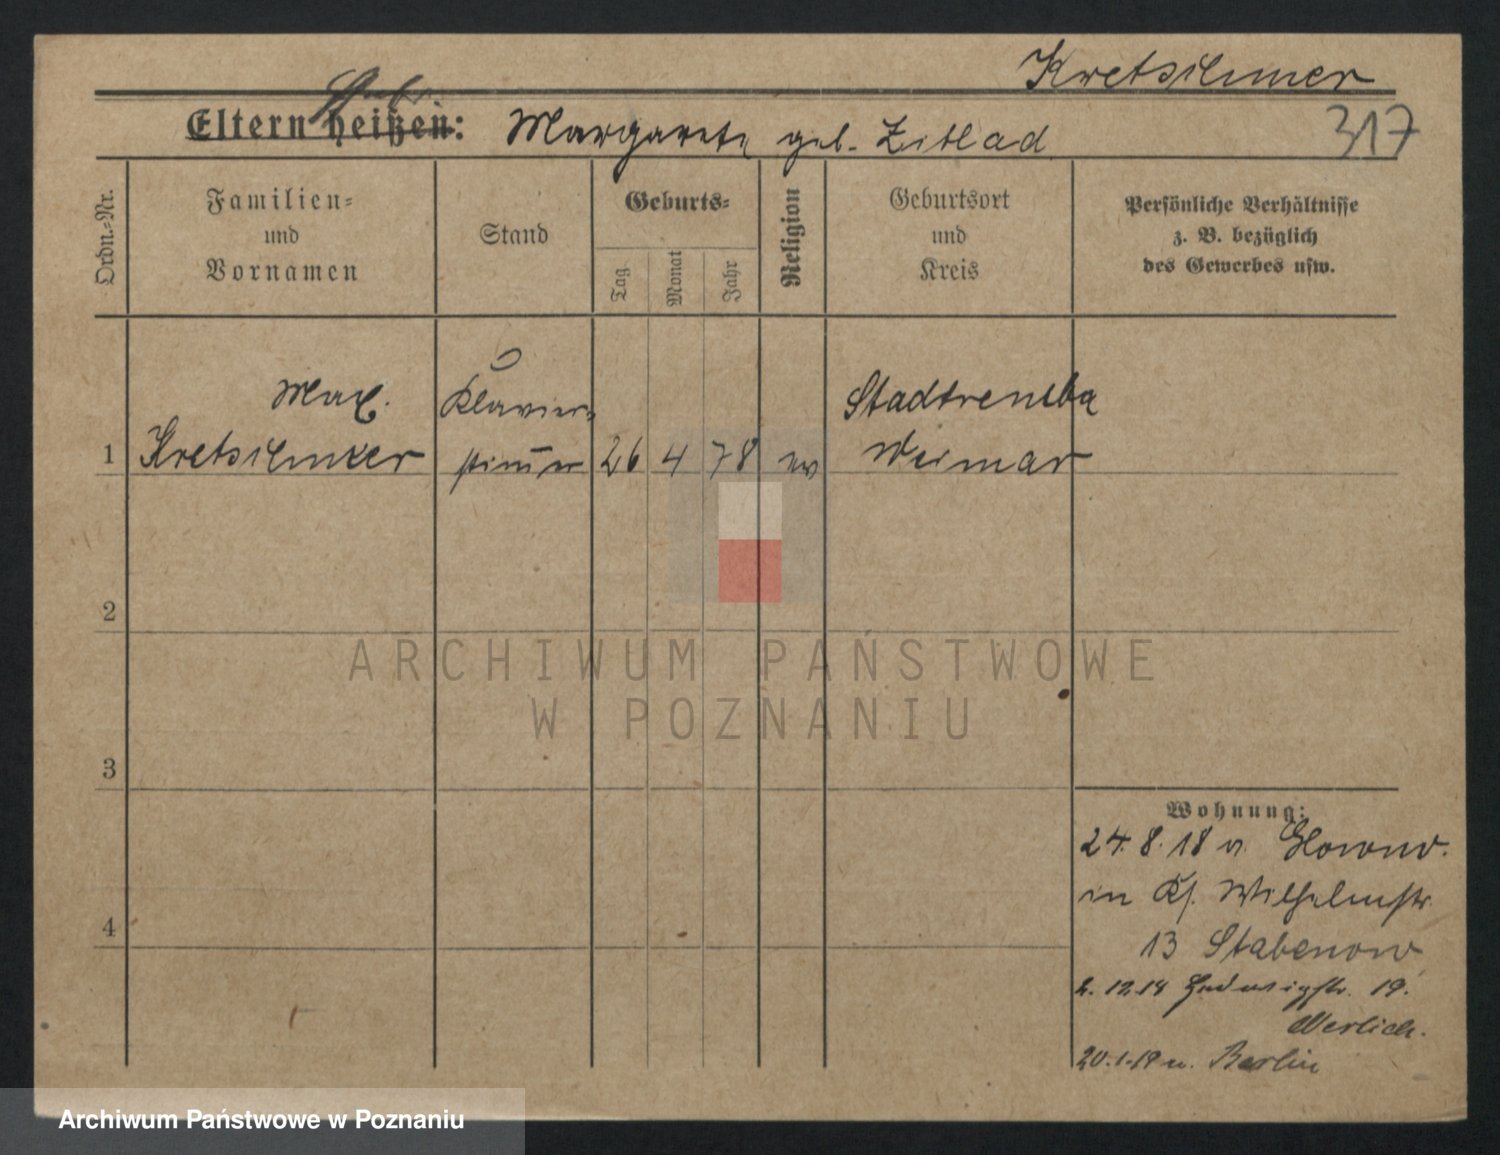 Kretschmer
317
Eltern heißen: Margarete geb. Zitlad
Ordn.-Nr.
Familien-
und
Vornamen
Stand
Geburts-
Tag
Monat
Jahr
Religion
Geburtsort
und
Kreis
Persönliche Verhältnisse
z. B. bezüglich
des Gewerbes usw.
Max.
Klavier-
Stadtremba
1
Kretschmer
26 4 78 ev
Weimar
2
ARCHIWUM PAŃSTWOWE
W POZNANIU
3
Wohnung:
24.8.18 v.
in Wilhelmstr.
4
13 Stabenow
2.12.18 Hedwigstr. 19.
Werlich.
20.1.19 n. Berlin
Archiwum Państwowe w Poznaniu